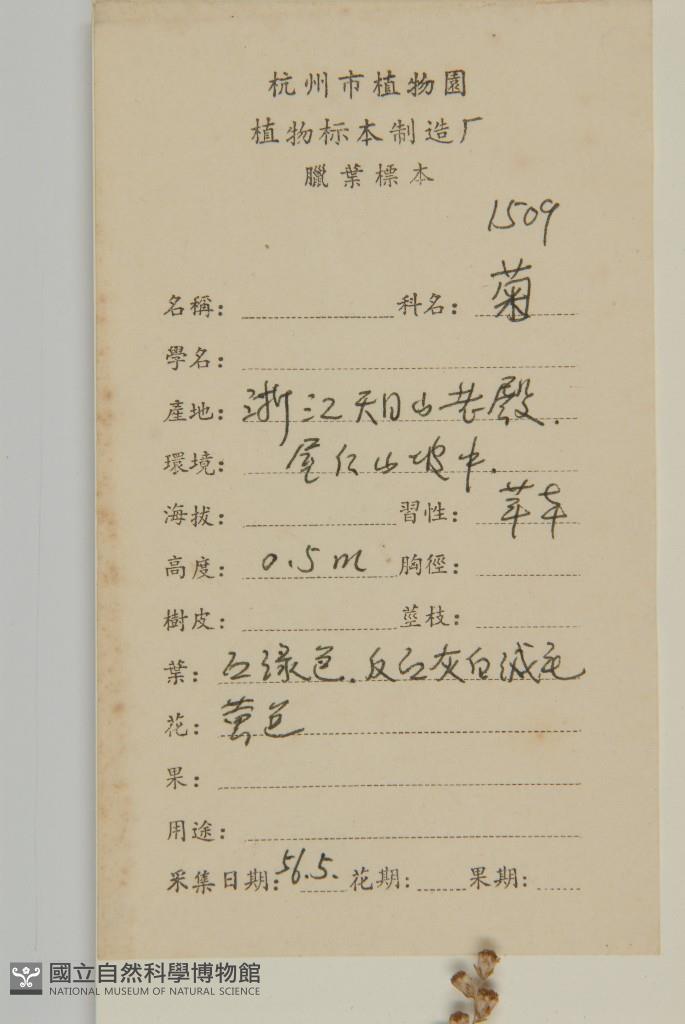 杭州市植物園
植物标本制造厂
臘葉標本
1509
名稱： 科名：菊
學名：
產地：浙江天目山 殿.
環境： 山坡中.
海拔： 習性：草本
高度：0.5m 胸徑：
樹皮： 莖枝：
葉： 绿色.反 灰白绒毛
花：黄色
果：
用途：
采集日期：56.5. 花期： 果期：
國立自然科學博物館
NATIONAL MUSEUM OF NATURAL SCIENCE